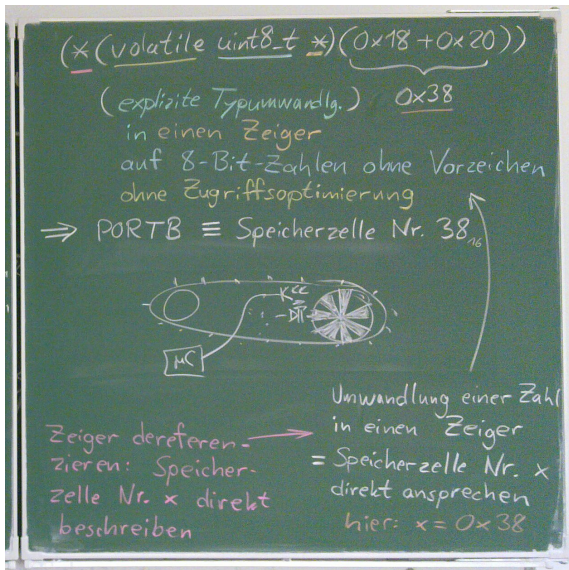 (*(volatile uint8_t *)(0x18+0x20))
0x38
(explizite Typumwandlg.)
in einen Zeiger
auf 8-Bit-Zahlen ohne Vorzeichen
ohne Zugriffsoptimierung
⇒ PORTB ≡ Speicherzelle Nr. 38₁₆
µC
Zeiger dereferen-
zieren: Speicher-
zelle Nr. x direkt
beschreiben
Umwandlung einer Zahl
in einen Zeiger
= Speicherzelle Nr. x
direkt ansprechen
hier: x = 0x38